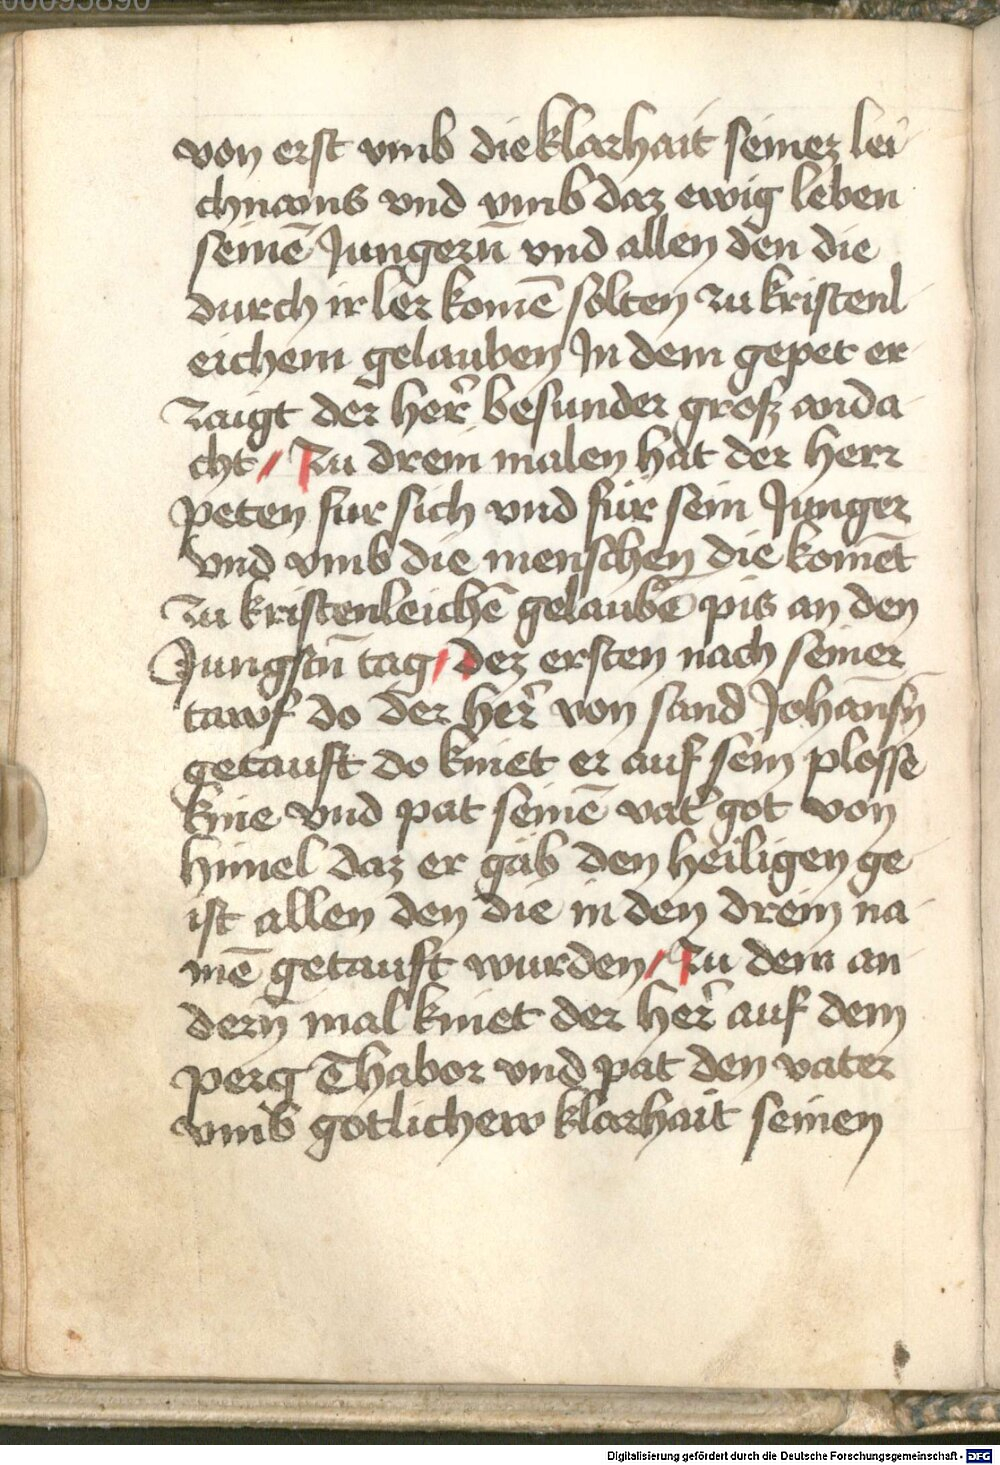 von erst vmb die klarhait seinez lei
chnams vnd vmb daz ewig leben
seinē Jungerū vnd allen den die
durch ir ler komē solten zu kristenl
eichem gelauben Jn dem gepet er
zaigt der her̄ besunder grosz anda
cht / Zu drein malen hat der herr
peten fur sich vnd für sein Junger
vnd vmb die menschen die komēt
zu kristenleichē gelaubē pis an den
Jungstn̄ tag / dez ersten nach seiner
tawf do der her̄ von sand Johānsn̄
getauft do kniet er auf sein plosse
knie vnd pat seinē vat̄ got von
himel daz er gäb den heiligen ge
ist allen den die in den drein na
mē getauft wurden / Zu dem an
dern̄ mal kniet der her̄ auf dem
perg Thabor vnd pat den vater
vmb gotlichew klarhait seinen
Digitalisierung gefördert durch die Deutsche Forschungsgemeinschaft - DFG